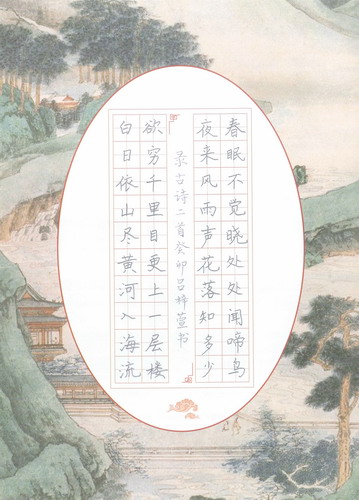 春眠不觉晓处处闻啼鸟
夜来风雨声花落知多少
录古诗二首癸卯吕梓萱书
欲穷千里目更上一层楼
白日依山尽黄河入海流